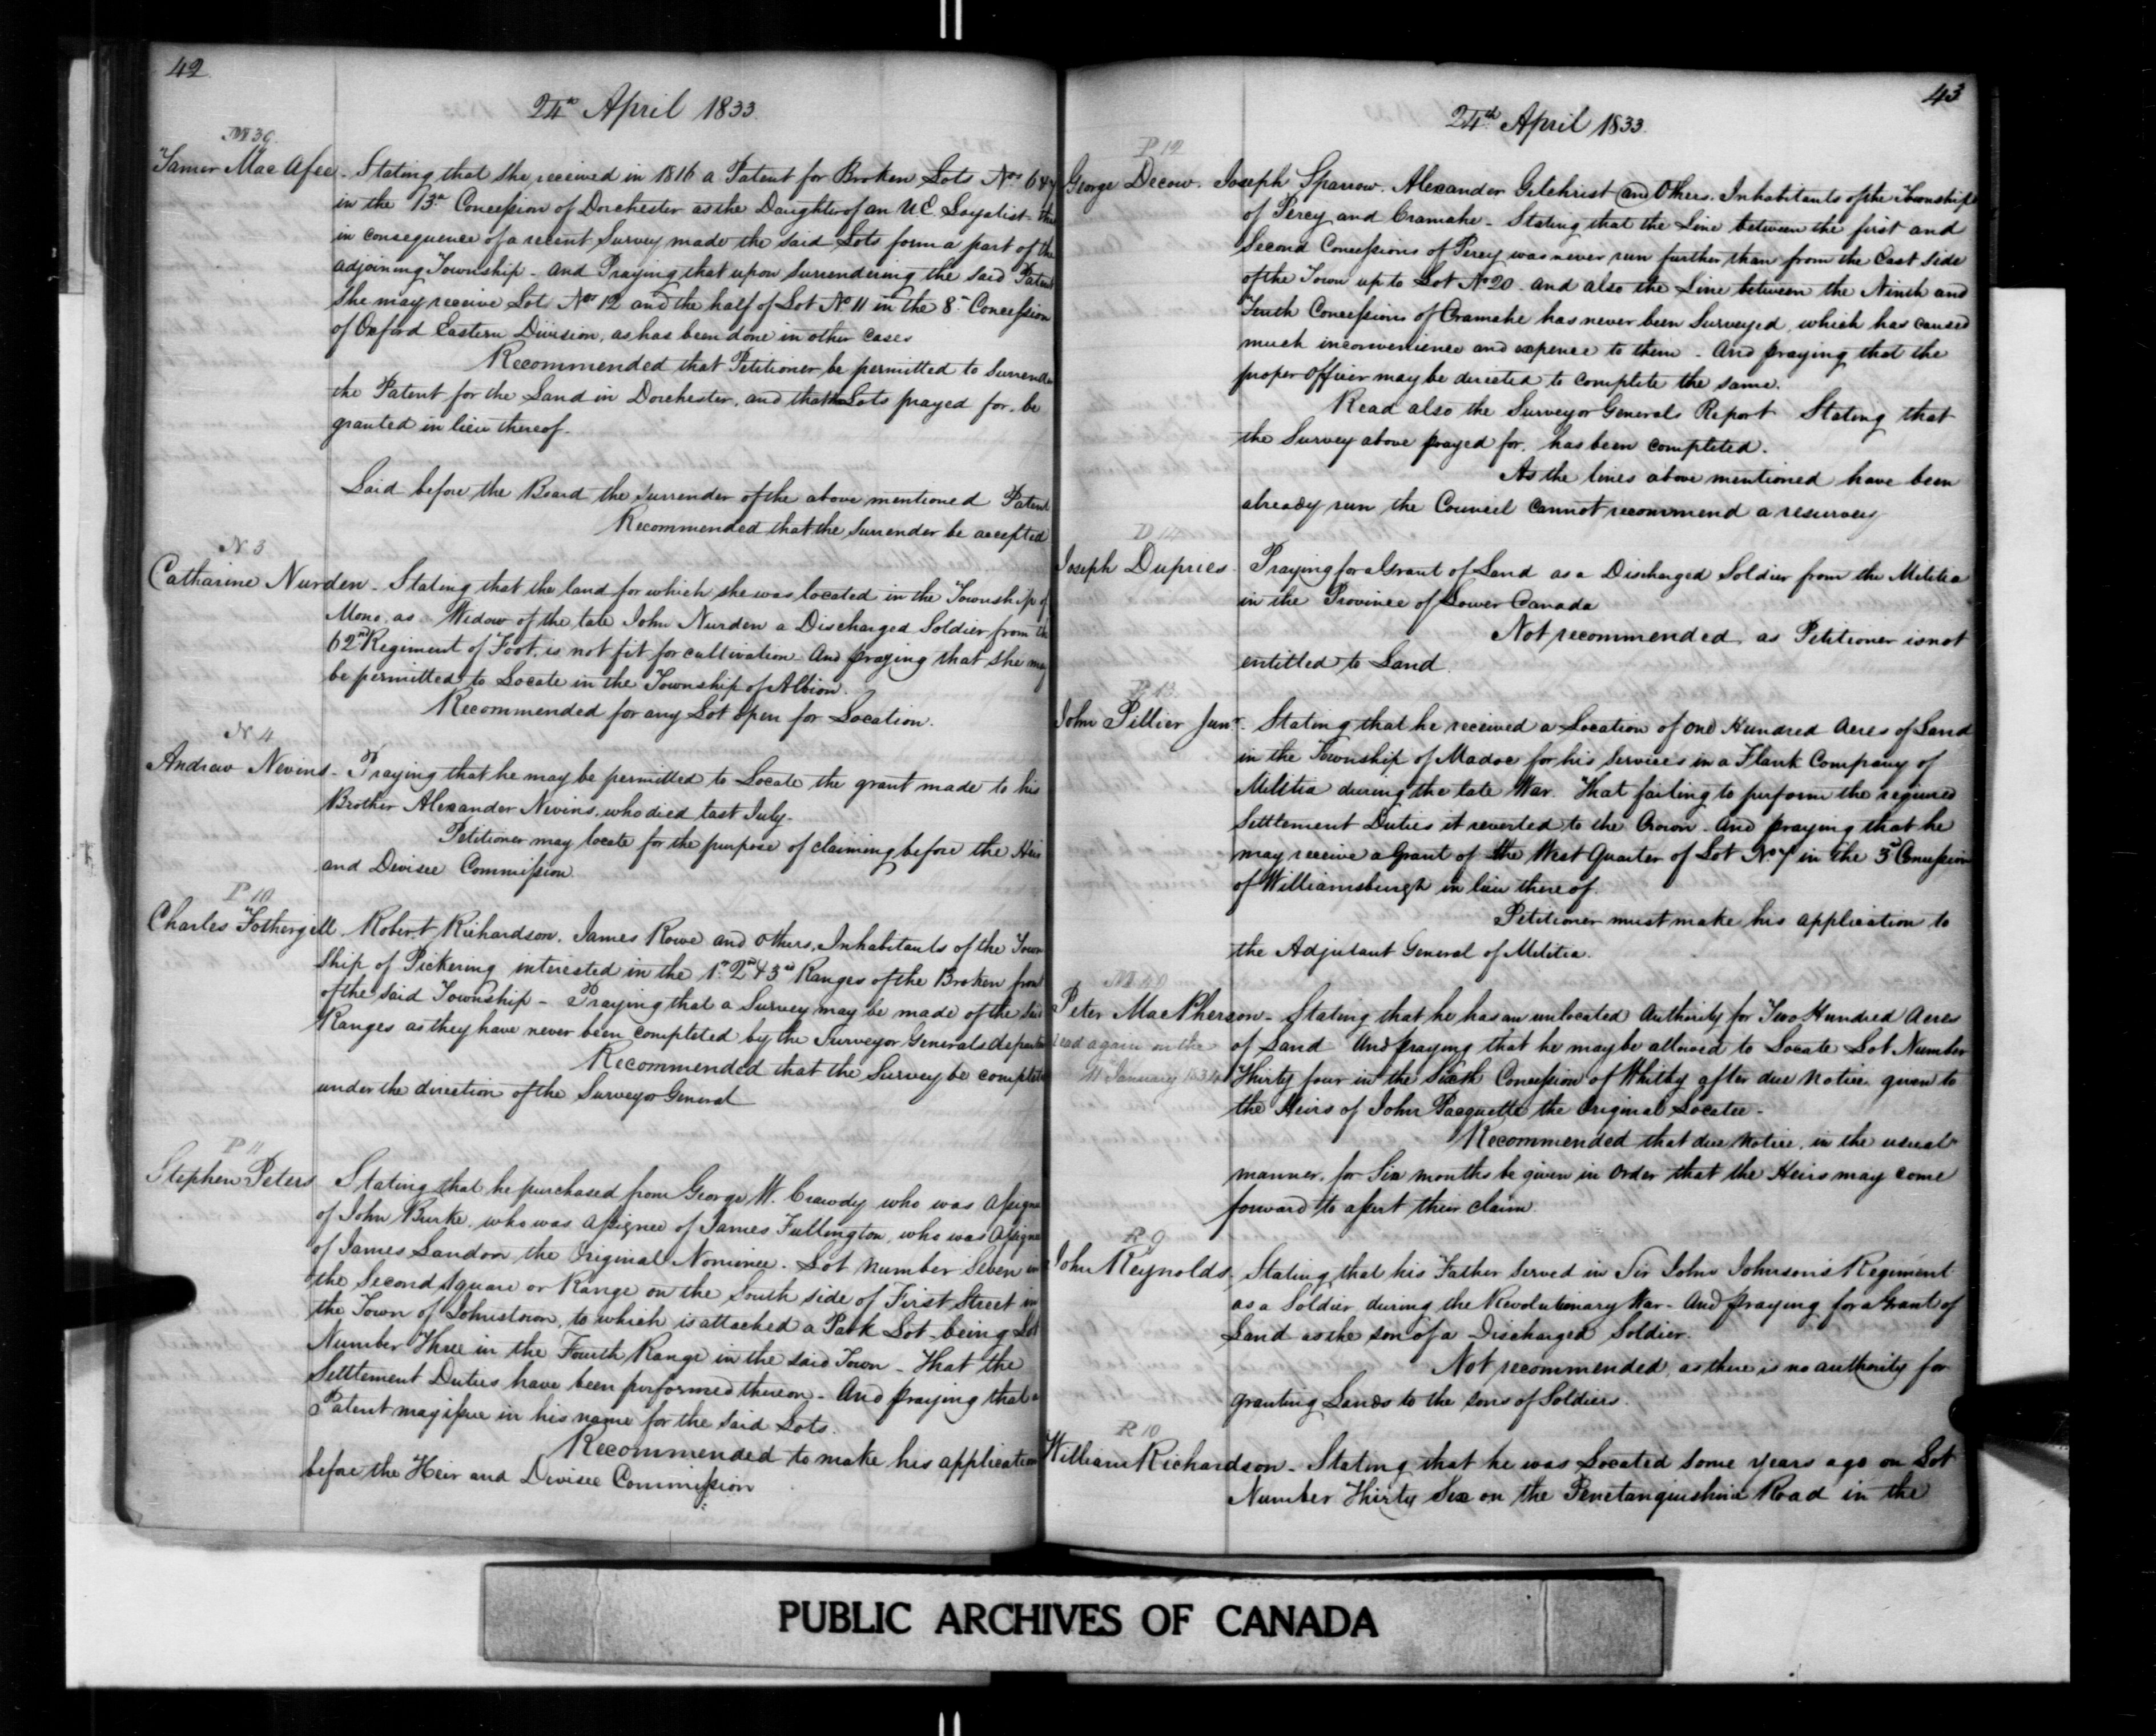 42
24th April 1833.
M 39
Tamer Mac Afee - Stating that she received in 1816 a Patent for Broken Lots Nos 6 & 7
in the 13th Concession of Dorchester as the Daughter of an U.E. Loyalist - that
in consequence of a recent Survey made the said Lots form a part of the
adjoining Township - and Praying that upon surrendering the said Patent
She may receive Lot Nos 12 and the half of Lot No 11 in the 8th Concession
of Oxford Eastern Division, as has been done in other cases
Recommended that Petitioner be permitted to Surrender
the Patent for the Land in Dorchester, and that the Lots prayed for, be
granted in lieu thereof.
Laid before the Board the Surrender of the above mentioned Patent
Recommended that the Surrender be accepted
N 3
Catharine Nurden - Stating that the land for which she was located in the Township of
Mono, as Widow of the late John Nurden a Discharged Soldier from the
62nd Regiment of Foot, is not fit for cultivation And praying that she may
be permitted to Locate in the Township of Albion.
Recommended for any Lot open for Location.
N 4
Andrew Nevins - Praying that he may be permitted to Locate the grant made to his
Brother Alexander Nivins, who died last July.
Petitioner may locate for the purpose of claiming before the Heir
and Devisee Commission
P 10
Charles Fothergill, Robert Richardson, James Rowe and others, Inhabitants of the Town
Ship of Pickering interested in the 1st 2nd & 3rd Ranges of the Broken front
of the said Township - Praying that a Survey may be made of the said
Ranges as they have never been completed by the Surveyor Generals department
Recommended that the Survey be completed
under the direction of the Surveyor General
P 11
Stephen Peters Stating that he purchased from George W. Crawdy who was Assignee
of John Burke, who was Assignee of James Fullington, who was Assignee
of James Landon the Original Nominee. Lot number Seven in
the Second Square or Range on the South side of First Street in
the Town of Johnstown, to which is attached a Park Lot being Lot
Number Three in the Fourth Range in the said Town - That the
Settlement Duties have been performed thereon - And praying that a
Patent may issue in his name for the said Lots.
Recommended to make his application
before the Heir and Devisee Commission
43
24th April 1833.
P 12
George Decow. Joseph Sparrow. Alexander Gilchrist and Others. Inhabitants of the Townships
of Percy and Cramahe - Stating that the Line between the first and
Second Concessions of Percy was never run further than from the East side
of the Town up to Lot No 20. and also the Line between the Ninth and
Tenth Concessions of Cramahe has never been Surveyed, which has caused
much inconvenience and expence to them - And praying that the
proper Officer may be directed to complete the same.
Read also the Surveyor Generals Report Stating that
the Survey above prayed for, has been completed.
As the lines above mentioned have been
already run the Council cannot recommend a resurvey
D 14
Joseph Dupries - Praying for a Grant of Land as a Discharged Soldier from the Militia
in the Province of Lower Canada
Not recommended, as Petitioner is not
entitled to Land.
P 13
John Pillier Junr - Stating that he received a Location of One Hundred Acres of Land
in the Township of Madoc for his Services in a Flank Company of
Militia during the late War. That failing to perform the required
Settlement Duties it reverted to the Crown - And praying that he
may receive a Grant of the West Quarter of Lot No 7 in the 3d Concession
of Williamsburgh in lieu thereof.
Petitioner must make his application to
the Adjutant General of Militia.
M 40
Peter MacPherson - Stating that he has an unlocated Authority for Two Hundred Acres
read again on the of Land And praying that he may be allowed to Locate Lot Number
11 January 1834 Thirty four in the Sixth Concession of Whitby after due notice given to
the Heirs of John Pacquette the Original Locatee -
Recommended that due notice, in the usual
manner, for Six months be given in Order that the Heirs may come
forward to assert their claim.
R 9
John Reynolds - Stating that his Father served in Sir John Johnsons Regiment
as a Soldier during the Revolutionary War - And praying for a Grant of
Land as the son of a Discharged Soldier.
Not recommended, as there is no authority for
granting Lands to the sons of Soldiers.
R 10
William Richardson - Stating that he was Located some years ago on Lot
Number Thirty Six on the Penetanguishine Road in the
PUBLIC ARCHIVES OF CANADA